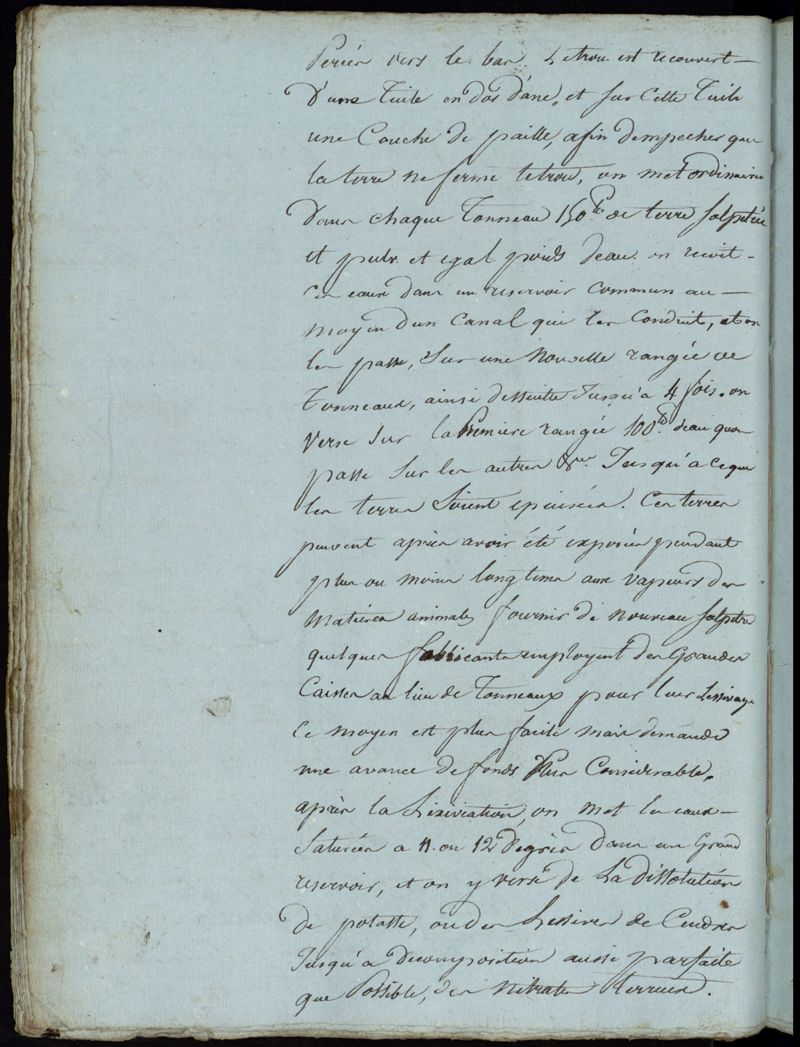 Percés vers le bas. Letrou est recouvert
D'une Tuile en dos d'ane, et sur Cette Tuile
une Couche de paille, afin dempecher que
la terre ne ferme letrou, on met ordinairem
Dans chaque Tonneau 150 de terre Salpetrée
et pulv. et egal poids deau. on recoit
Ces eaux dans un reservoir commun au
moyen d'un Canal qui les Conduit, et on
les passe, Sur une nouvelle rangée de
Tonneaux, ainsi desuite Jusqu'a 4 fois. on
verse Sur la Premiere rangée 100 d'eau quon
passe Sur les autres Jusqu'a ceque
les terres Soient epuisées. Ces terres
peuvent après avoir été exposées pendant
plus ou moins longtems aux vapeurs des
Matières animales fournir de nouveau Salpetre
quelques fabricants employent des Grandes
Caisses au lieu de Tonneaux pour leur Lessivage
Ce moyen est plus facile mais demande
une avance de fonds Plus Considerable.
après la Lixiviation, on met les eaux
Saturées a 11 ou 12 Degrés dans un Grand
reservoir, et on y verse de La dissolution
de potasse, ou des Lessives de Cendres
Jusqu'a Decomposition aussi parfaite
que Possible, des nitrates terreux.